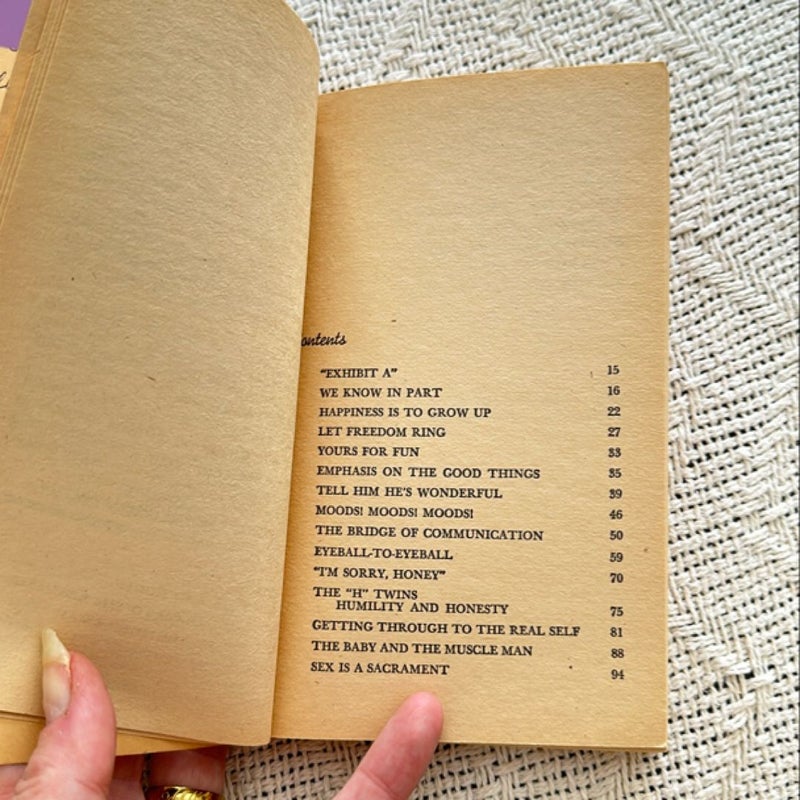 ontents
"EXHIBIT A" 15
WE KNOW IN PART 16
HAPPINESS IS TO GROW UP 22
LET FREEDOM RING 27
YOURS FOR FUN 33
EMPHASIS ON THE GOOD THINGS 35
TELL HIM HE'S WONDERFUL 39
MOODS! MOODS! MOODS! 46
THE BRIDGE OF COMMUNICATION 50
EYEBALL-TO-EYEBALL 59
"I'M SORRY, HONEY" 70
THE "H" TWINS
HUMILITY AND HONESTY 75
GETTING THROUGH TO THE REAL SELF 81
THE BABY AND THE MUSCLE MAN 88
SEX IS A SACRAMENT 94